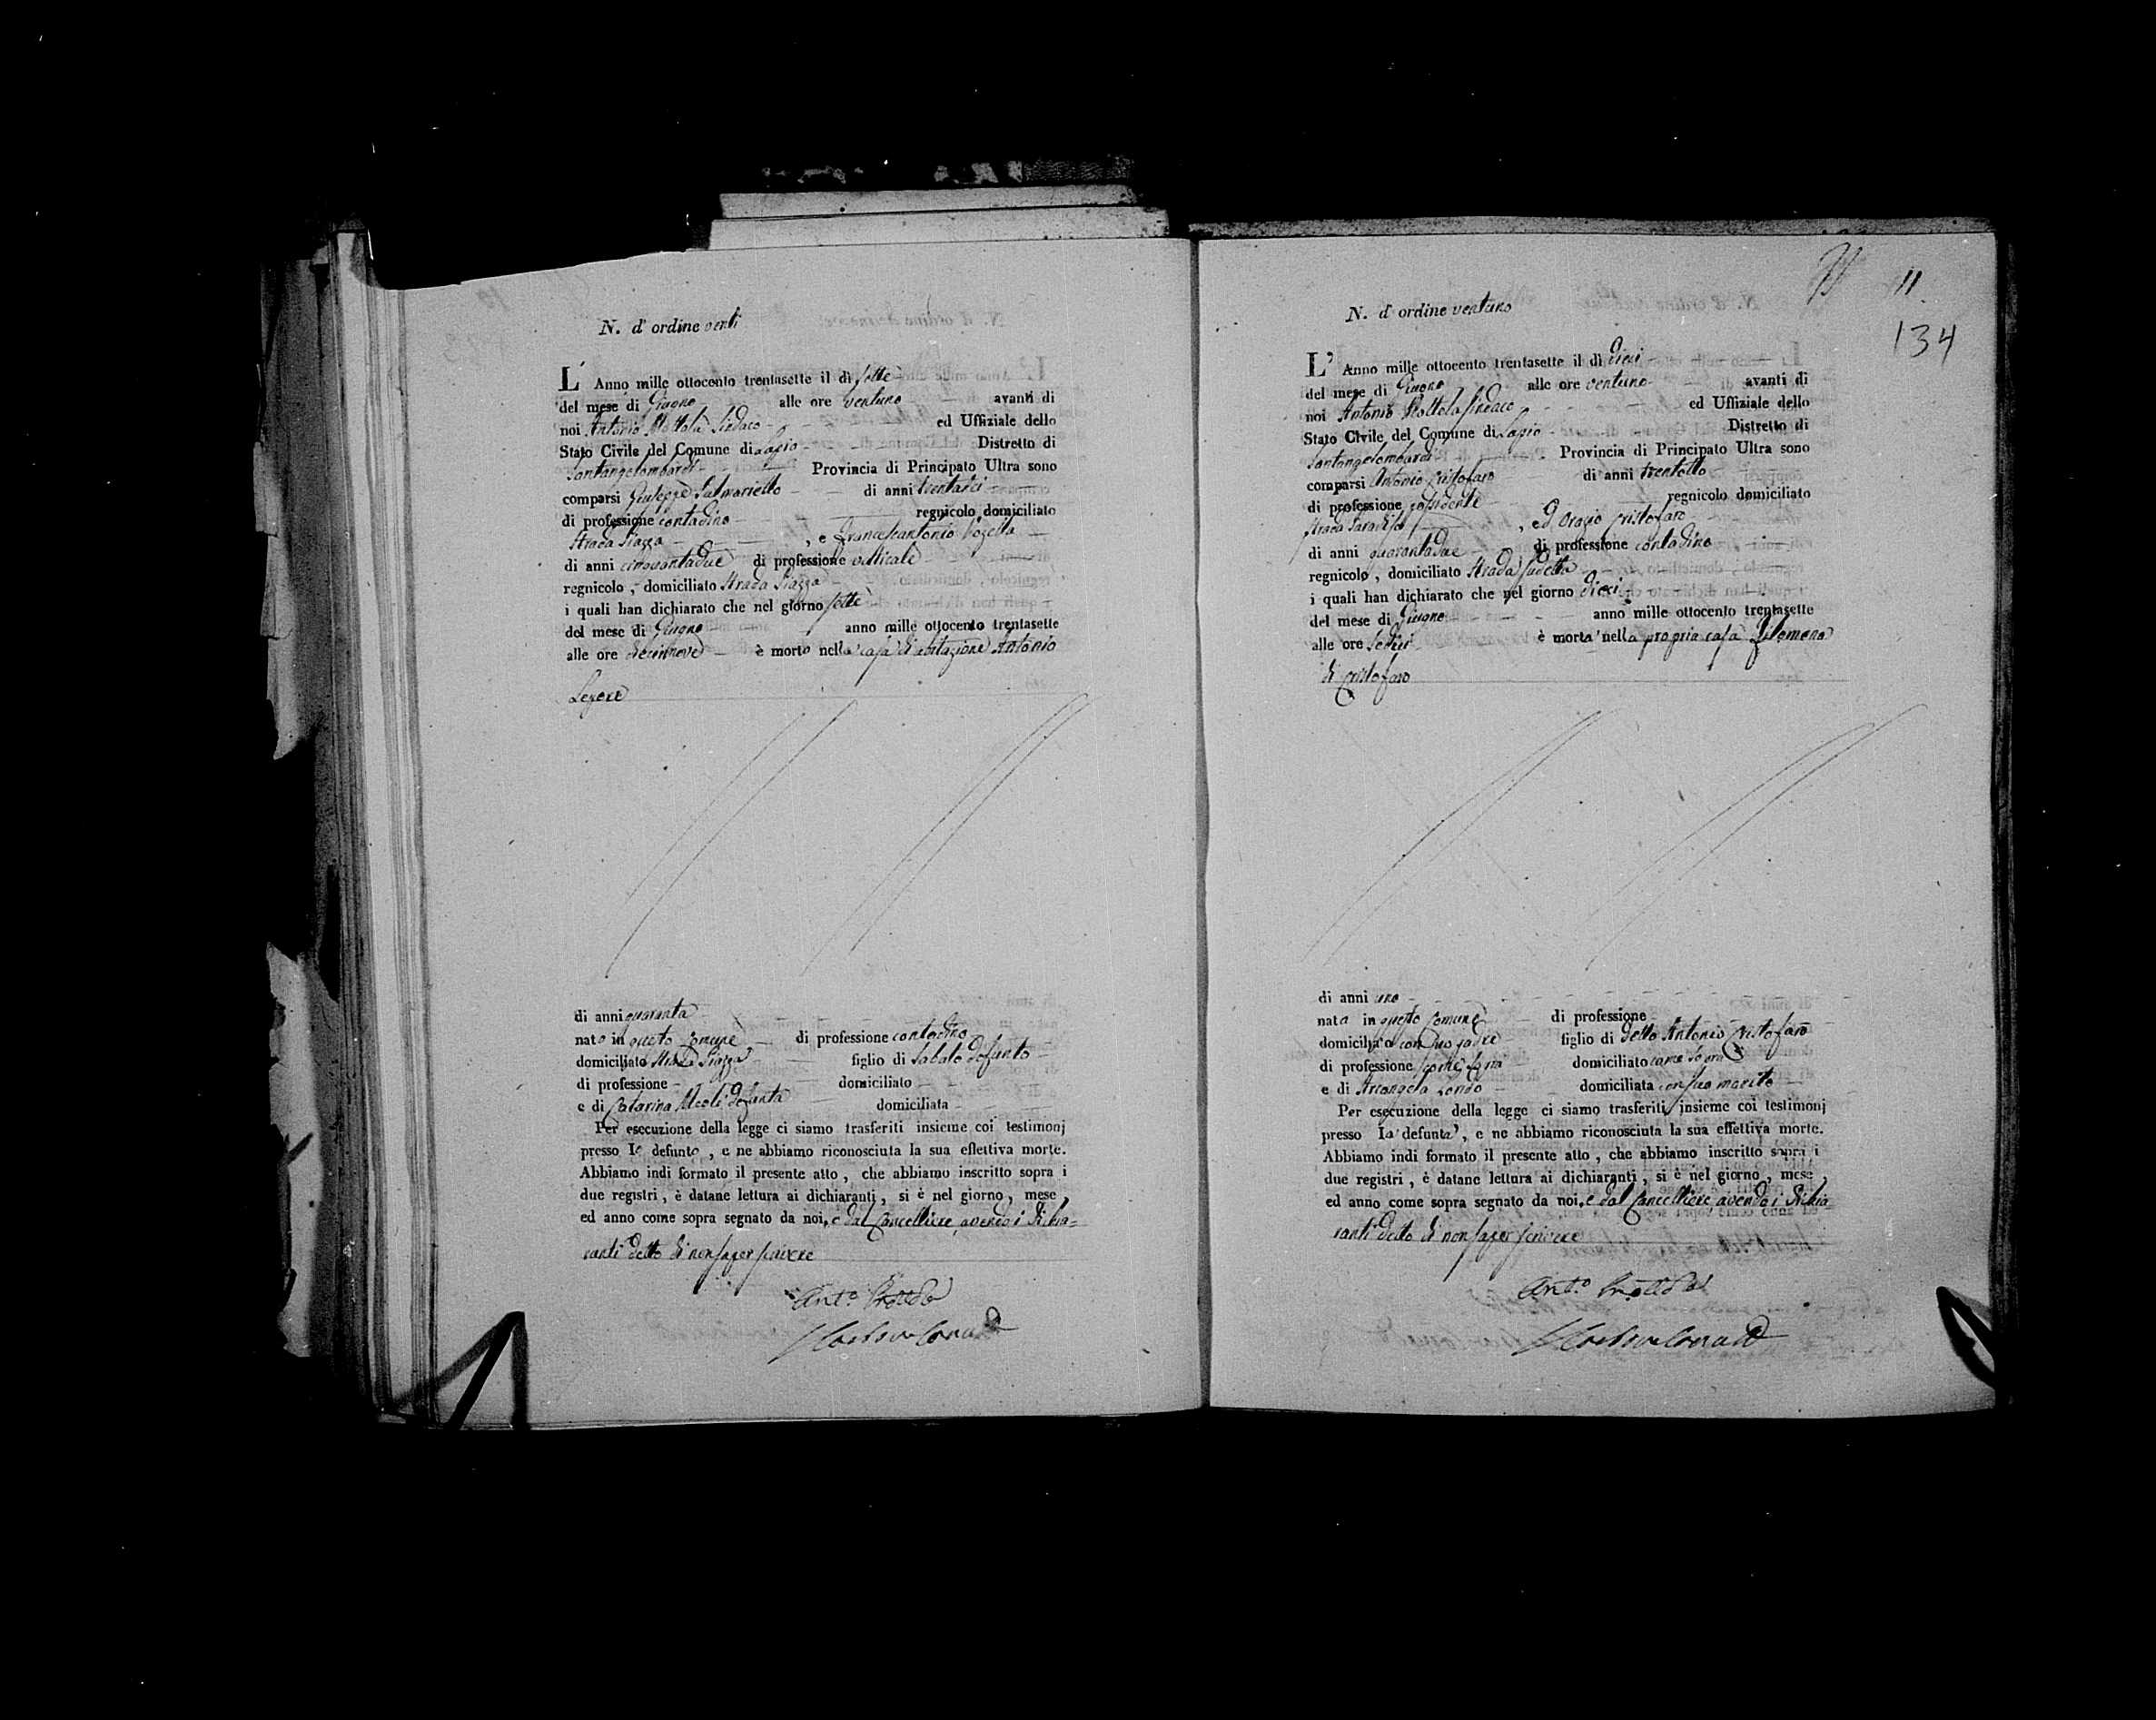 N. d' ordine venti
L' Anno mille ottocento trentasette il dì sette
del mese di Giugno alle ore ventuno avanti di
noi Antonio Sindaco ed Uffiziale dello
Stato Civile del Comune di Lapio Distretto di
Santangelombardi Provincia di Principato Ultra sono
comparsi Giuseppe di anni trentasei
di professione contadino regnicolo domiciliato
Strada Piazza , e Francescantonio
di anni cinquantadue di professione vaticale
regnicolo , domiciliato Strada Piazza
i quali han dichiarato che nel giorno sette
del mese di Giugno anno mille ottocento trentasette
alle ore diecinnove è morto nella casa di abitazione Antonio
Lepore
di anni quaranta
nato in questo Comune di professione contadino
domiciliato Strada Piazza figlio di Sabato defunto
di professione domiciliato
e di Catarina Meoli defunta domiciliata
Per esecuzione della legge ci siamo trasferiti insieme coi testimonj
presso lo defunto , e ne abbiamo riconosciuta la sua effettiva morte.
Abbiamo indi formato il presente atto , che abbiamo inscritto sopra i
due registri , è datane lettura ai dichiaranti , si è nel giorno , mese ,
ed anno come sopra segnato da noi, e dal Cancelliere avendo i dichia=
ranti detto di non saper scrivere
Ant.o
11
134
N. d' ordine ventuno
L' Anno mille ottocento trentasette il dì dieci
del mese di Giugno alle ore ventuno avanti di
noi Antonio Sindaco ed Uffiziale dello
Stato Civile del Comune di Lapio Distretto di
Santangelombardi Provincia di Principato Ultra sono
comparsi Antonio Cristofaro di anni trentotto
di professione possidente regnicolo domiciliato
Strada , ed Orazio Cristofaro
di anni quarantadue di professione contadino
regnicolo , domiciliato Strada sudetta
i quali han dichiarato che nel giorno dieci
del mese di Giugno anno mille ottocento trentasette
alle ore sedici è morta nella propria casa Filomena
di Cristofaro
di anni uno
nata in questo Comune di professione
domiciliata con suo padre figlio di detto Antonio Cristofaro
di professione come sopra domiciliato come sopra
e di Arcangela domiciliata con suo marito
Per esecuzione della legge ci siamo trasferiti insieme coi testimonj
presso la defunta , e ne abbiamo riconosciuta la sua effettiva morte.
Abbiamo indi formato il presente atto , che abbiamo inscritto sopra i
due registri , è datane lettura ai dichiaranti , si è nel giorno , mese ,
ed anno come sopra segnato da noi, e dal Cancelliere avendo i dichia
ranti detto di non saper scrivere
Ant.o